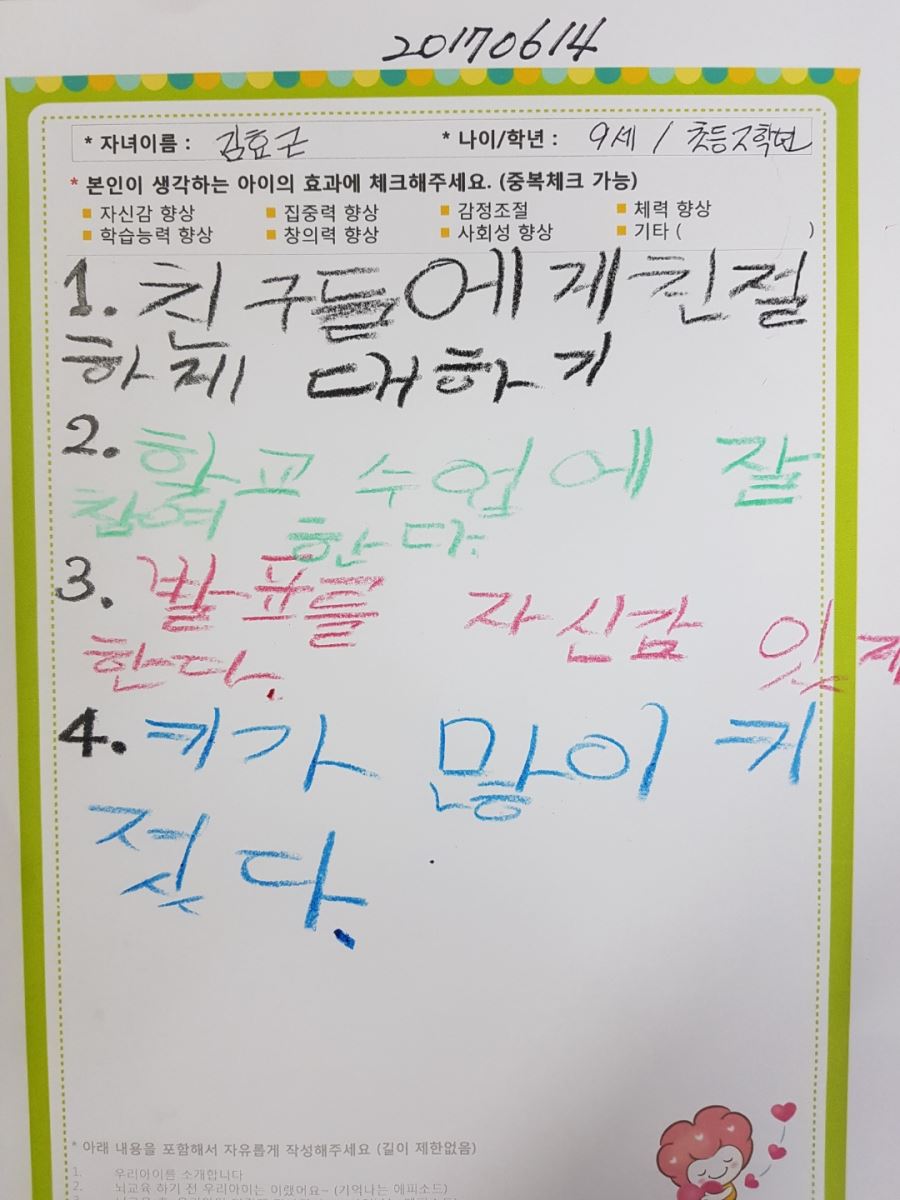 20170614
* 자녀이름 : 김효근 * 나이/학년 : 9세 / 초등2학년
* 본인이 생각하는 아이의 효과에 체크해주세요. (중복체크 가능)
자신감 향상 집중력 향상 감정조절 체력 향상
학습능력 향상 창의력 향상 사회성 향상 기타 ( )
1. 친구들에게 친절
하제 대하기
2. 학교 수업에 잘
참여 한다.
3. 발표를 자신감 있게
한다.
4. 키가 많이 커
젔다.
* 아래 내용을 포함해서 자유롭게 작성해주세요 (길이 제한없음)
1. 우리아이를 소개합니다
2. 뇌교육 하기 전 우리아이는 이랬어요~ (기억나는 에피소드)